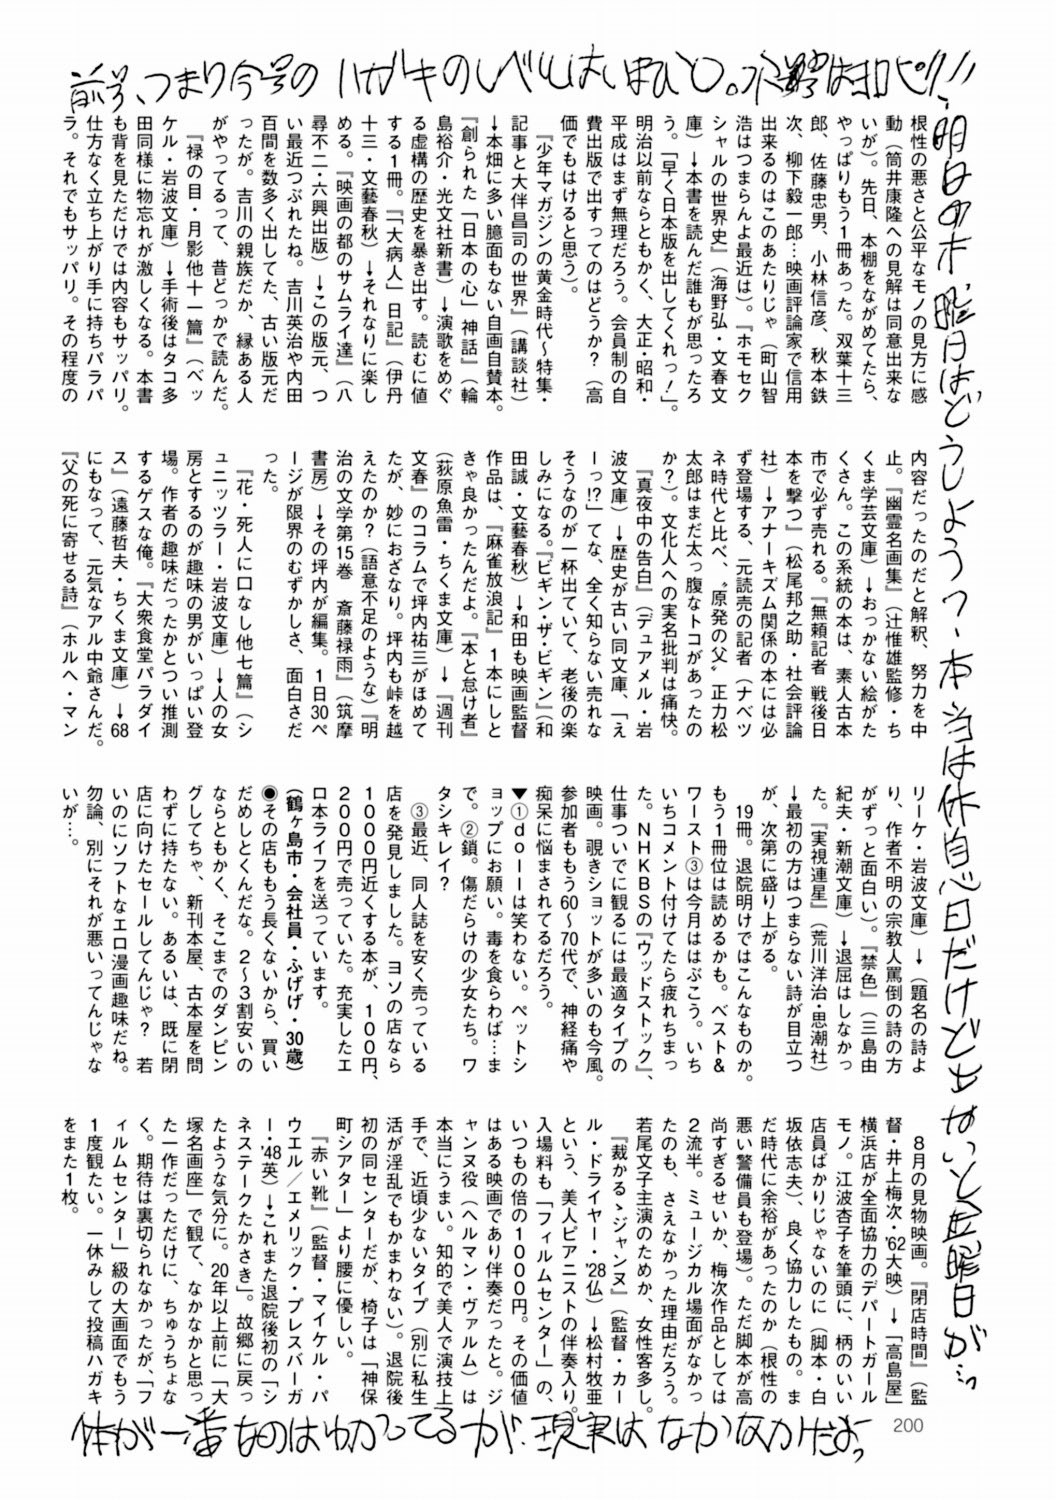 前号、つまり今号のハガキのレベルはいまひとつ。水野はヨロピク!!
根性の悪さと公平なモノの見方に感
動(筒井康隆への見解は同意出来な
いが)。先日、本棚をながめてたら、
やっぱりもう1冊あった。双葉十三
郎、佐藤忠男、小林信彦、秋本鉄
次、柳下毅一郎…映画評論家で信用
出来るのはこのあたりじゃ(町山智
浩はつまらんよ最近は)。『ホモセク
シャルの世界史』(海野弘・文春文
庫)→本書を読んだ誰もが思ったろ
う。「早く日本版を出してくれっ!」。
明治以前ならともかく、大正・昭和・
平成はまず無理だろう。会員制の自
費出版で出すってのはどうか?(高
価でもはけると思う)。
『少年マガジンの黄金時代〜特集・
記事と大伴昌司の世界』(講談社)
→本畑に多い臆面もない自画自賛本。
『創られた「日本の心」神話』(輪
島裕介・光文社新書)→演歌をめぐ
る虚構の歴史を暴き出す。読むに値
する1冊。『「大病人」日記』(伊丹
十三・文藝春秋)→それなりに楽し
める。『映画の都のサムライ達』(八
尋不二・六興出版)→この版元、つ
い最近つぶれたね。吉川英治や内田
百間を数多く出してた、古い版元だ
ったが。吉川の親族だか、縁ある人
がやってるって、昔どっかで読んだ。
『禄の目・月影他十一篇』(ベッ
ケル・岩波文庫)→手術後はタコ多
田同様に物忘れが激しくなる。本書
も背を見ただけでは内容もサッパリ。
仕方なく立ち上がり手に持ちパラパ
ラ。それでもサッパリ。その程度の
内容だったのだと解釈、努力を中
止。『幽霊名画集』(辻惟雄監修・ち
くま学芸文庫)→おっかない絵がた
くさん。この系統の本は、素人古本
市で必ず売れる。『無頼記者 戦後日
本を撃つ』(松尾邦之助・社会評論
社)→アナーキズム関係の本には必
ず登場する、元読売の記者(ナベツ
ネ時代と比べ、〝原発の父〟正力松
太郎はまだ太っ腹なトコがあったの
か?)。文化人への実名批判は痛快。
『真夜中の告白』(デュアメル・岩
波文庫)→歴史が古い同文庫、「え
ーっ!?」てな、全く知らない売れな
そうなのが一杯出ていて、老後の楽
しみになる。『ビギン・ザ・ビギン』(和
田誠・文藝春秋)→和田も映画監督
作品は、『麻雀放浪記』1本にしと
きゃ良かったんだよ。『本と怠け者』
(荻原魚雷・ちくま文庫)→『週刊
文春』のコラムで坪内祐三がほめて
たが、妙におざなり。坪内も峠を越
えたのか?(語意不足のような)『明
治の文学第15巻 斎藤禄雨』(筑摩
書房)→その坪内が編集。1日30ペ
ージが限界のむずかしさ、面白さだ
った。
『花・死人に口なし他七篇』(シ
ュニッツラー・岩波文庫)→人の女
房とするのが趣味の男がいっぱい登
場。作者の趣味だったかとつい推測
するゲスな俺。『大衆食堂パラダイ
ス』(遠藤哲夫・ちくま文庫)→68
にもなって、元気なアル中爺さんだ。
『父の死に寄せる詩』(ホルヘ・マン
リーケ・岩波文庫)→(題名の詩よ
り、作者不明の宗教人罵倒の詩の方
がずっと面白い)。『禁色』(三島由
紀夫・新潮文庫)→退屈はしなかっ
た。『実視連星』(荒川洋治・思潮社)
→最初の方はつまらない詩が目立つ
が、次第に盛り上がる。
19冊。退院明けではこんなものか。
もう1冊位は読めるかも。ベスト&
ワースト③は今月ははぶこう。いち
いちコメント付けてたら疲れちまっ
た。NHKBSの『ウッドストック』、
仕事ついでに観るには最適タイプの
映画。覗きショットが多いのも今風。
参加者ももう60〜70代で、神経痛や
痴呆に悩まされてるだろう。
▼①dollは笑わない。ペットシ
ョップにお願い。毒を食らわば…ま
で。②鎖。傷だらけの少女たち。ワ
タシキレイ?
③最近、同人誌を安く売っている
店を発見しました。ヨソの店なら
1000円近くする本が、100円、
200円で売っていた。充実したエ
ロ本ライフを送っています。
(鶴ヶ島市・会社員・ふげげ・30歳)
◉その店ももう長くないから、買い
だめしとくんだな。2〜3割安いの
ならともかく、そこまでのダンピン
グしてちゃ、新刊本屋、古本屋を問
わずに持たない。あるいは、既に閉
店に向けたセールしてんじゃ? 若
いのにソフトなエロ漫画趣味だね。
勿論、別にそれが悪いってんじゃな
いが…。
8月の見物映画。『閉店時間』(監
督・井上梅次・'62大映)→「高島屋」
横浜店が全面協力のデパートガール
モノ。江波杏子を筆頭に、柄のいい
店員ばかりじゃないのに(脚本・白
坂依志夫)、良く協力したもの。ま
だ時代に余裕があったのか(根性の
悪い警備員も登場)。ただ脚本が高
尚すぎるせいか、梅次作品としては
2流半。ミュージカル場面がなかっ
たのも、さえなかった理由だろう。
若尾文子主演のためか、女性客多し。
『裁かるゝジャンヌ』(監督・カー
ル・ドライヤー・'28仏)→松村牧亜
という、美人ピアニストの伴奏入り。
入場料も「フィルムセンター」の、
いつもの倍の1000円。その価値
はある映画であり伴奏だったと。ジ
ャンヌ役(ヘルマン・ヴァルム)は
本当にうまい。知的で美人で演技上
手で、近頃少ないタイプ(別に私生
活が淫乱でもかまわない)。退院後
初の同センターだが、椅子は「神保
町シアター」より腰に優しい。
『赤い靴』(監督・マイケル・パ
ウエル/エメリック・プレスバーガ
ー・'48英)→これまた退院後初の「シ
ネステークたかさき」。故郷に戻っ
たような気分に。20年以上前に「大
塚名画座」で観て、なかなかと思っ
た一作だっただけに、ちゅうちょな
く。期待は裏切られなかったが、「フ
ィルムセンター」級の大画面でもう
1度観たい。一休みして投稿ハガキ
をまた1枚。
明日の木曜日はどうしよう?本当は休息日だけど出ないと金曜日が…。
体が一番なのはわかってるが、現実はなかなかだよっ
200